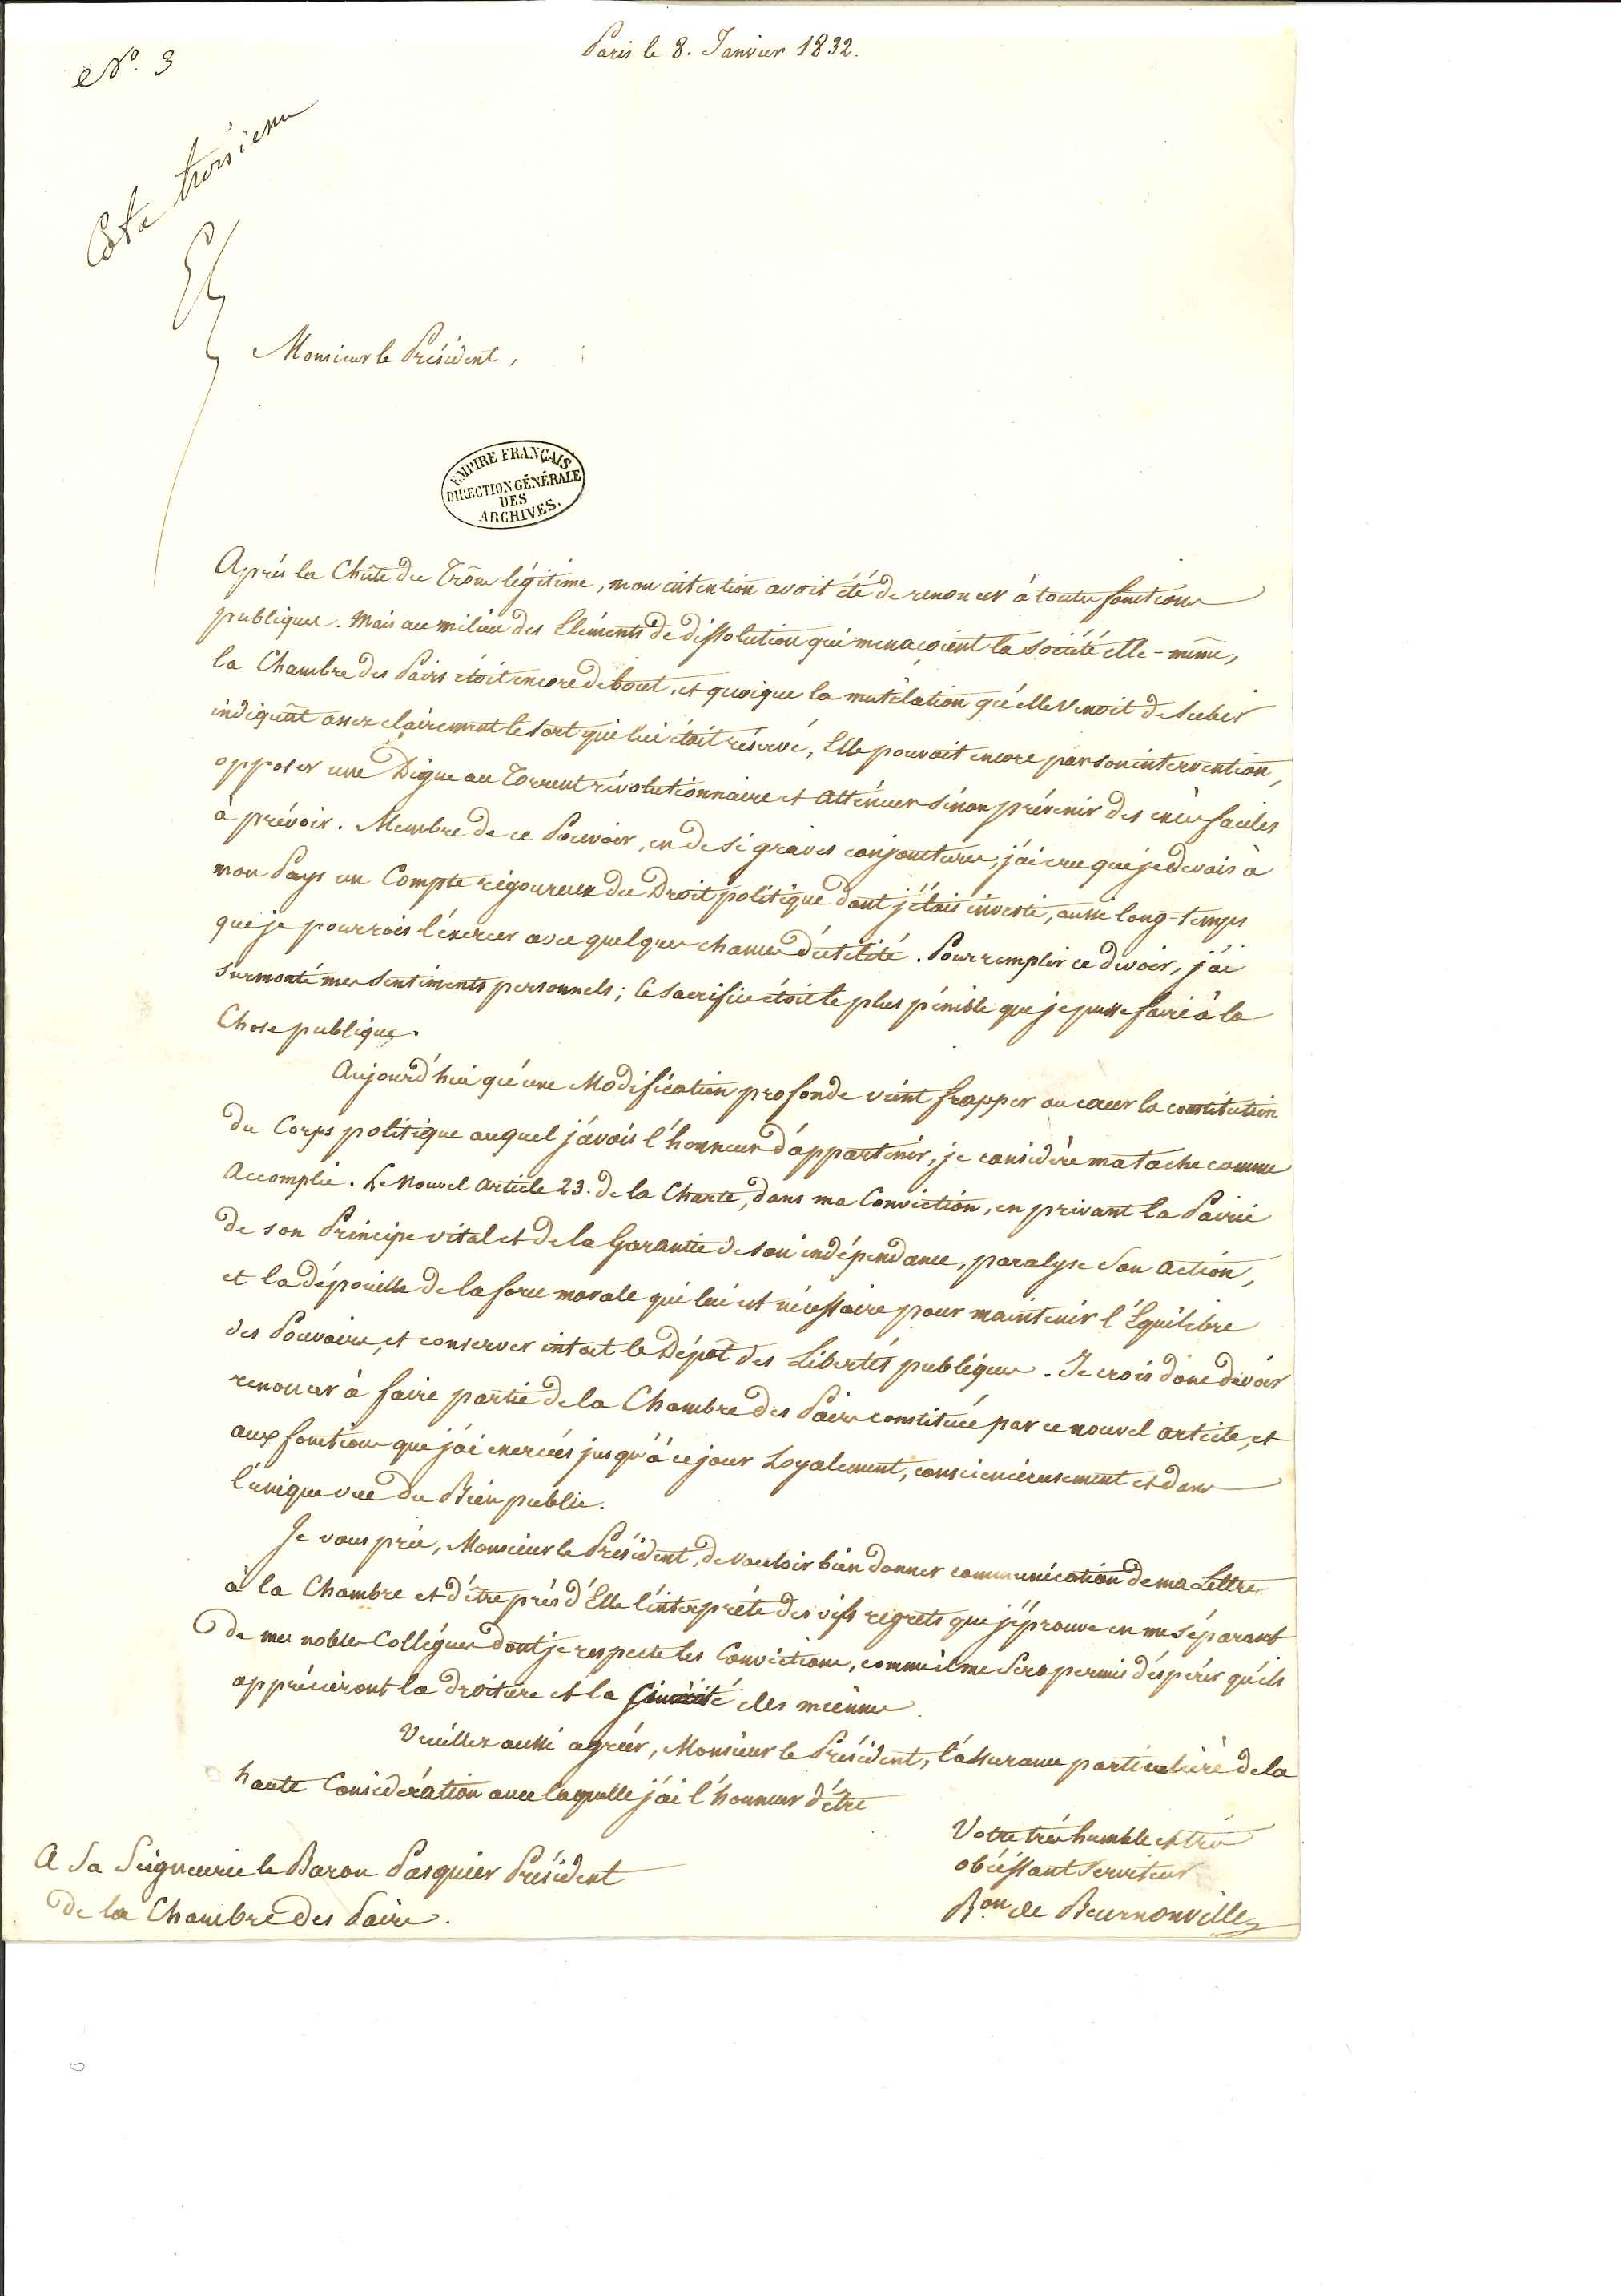 Paris le 8. Janvier 1832.
N.º 3
Cote troisieme
Monsieur le Président,
EMPIRE FRANÇAIS
DIRECTION GÉNÉRALE
DES
ARCHIVES.
Après la Chûte du Trône légitime, mon intention avoit été de renoncer à toutes fonctions
publiques. Mais au milieu des Eléments de dissolution qui menaçoient la société elle-même,
la Chambre des Pairs étoit encore debout, et quoique la mutilation qu'elle venoit de subir
indiquât assez clairement le sort qui lui étoit réservé, Elle pouvait encore par son intervention,
opposer une Digue au Torrent révolutionnaire et atténuer sinon prévenir des excès faciles
à prévoir. Membre de ce Pouvoir, en de si graves conjonctures, j'ai cru que je devais à
mon Pays un Compte rigoureux du Droit politique dont j'étais investi, aussi long-temps
que je pourrois l'éxercer avec quelques chances d'utilité. Pour remplir ce devoir, j'ai
surmonté mes sentiments personnels; le sacrifice étoit le plus pénible que je pusse faire à la
Chose publique.
Aujourd'hui qu'une Modification profonde vient frapper au cœur la constitution
du Corps politique auquel j'avois l'honneur d'appartenir, je considère ma tache comme
Accomplie. Le Nouvel article 23. de la Charte, dans ma Conviction, en privant la Pairie
de son Principe vital et de la Garantie de son indépendance, paralyse son action,
et la dépouille de la force morale qui lui est nécessaire pour maintenir l'Equilibre
des Pouvoirs, et conserver intact le Dépôt des Libertés publiques. Je crois donc devoir
renoncer à faire partie de la Chambre des Pairs constituée par ce nouvel article, et
aux fonctions que j'ai exercées jusqu'à ce jour Loyalement, consciencieusement et dans
l'unique vue du Bien public.
Je vous prie, Monsieur le Président, de vouloir bien donner communication de ma Lettre
à la Chambre et d'être près d'Elle l'interprète des vifs regrets que j'éprouve en me séparant
de mes nobles Collègues dont je respecte les Convictions, comme il me sera permis d'espérer qu'ils
apprécieront la droiture et la sincérité des miennes.
Veuillez aussi agréer, Monsieur le Président, l'assurance particulière de la
haute Considération avec laquelle j'ai l'honneur d'être
Votre très humble et très
obéissant serviteur
Bon de Beurnonville
A Sa Seigneurie le Baron Pasquier Président
de la Chambre des Pairs.